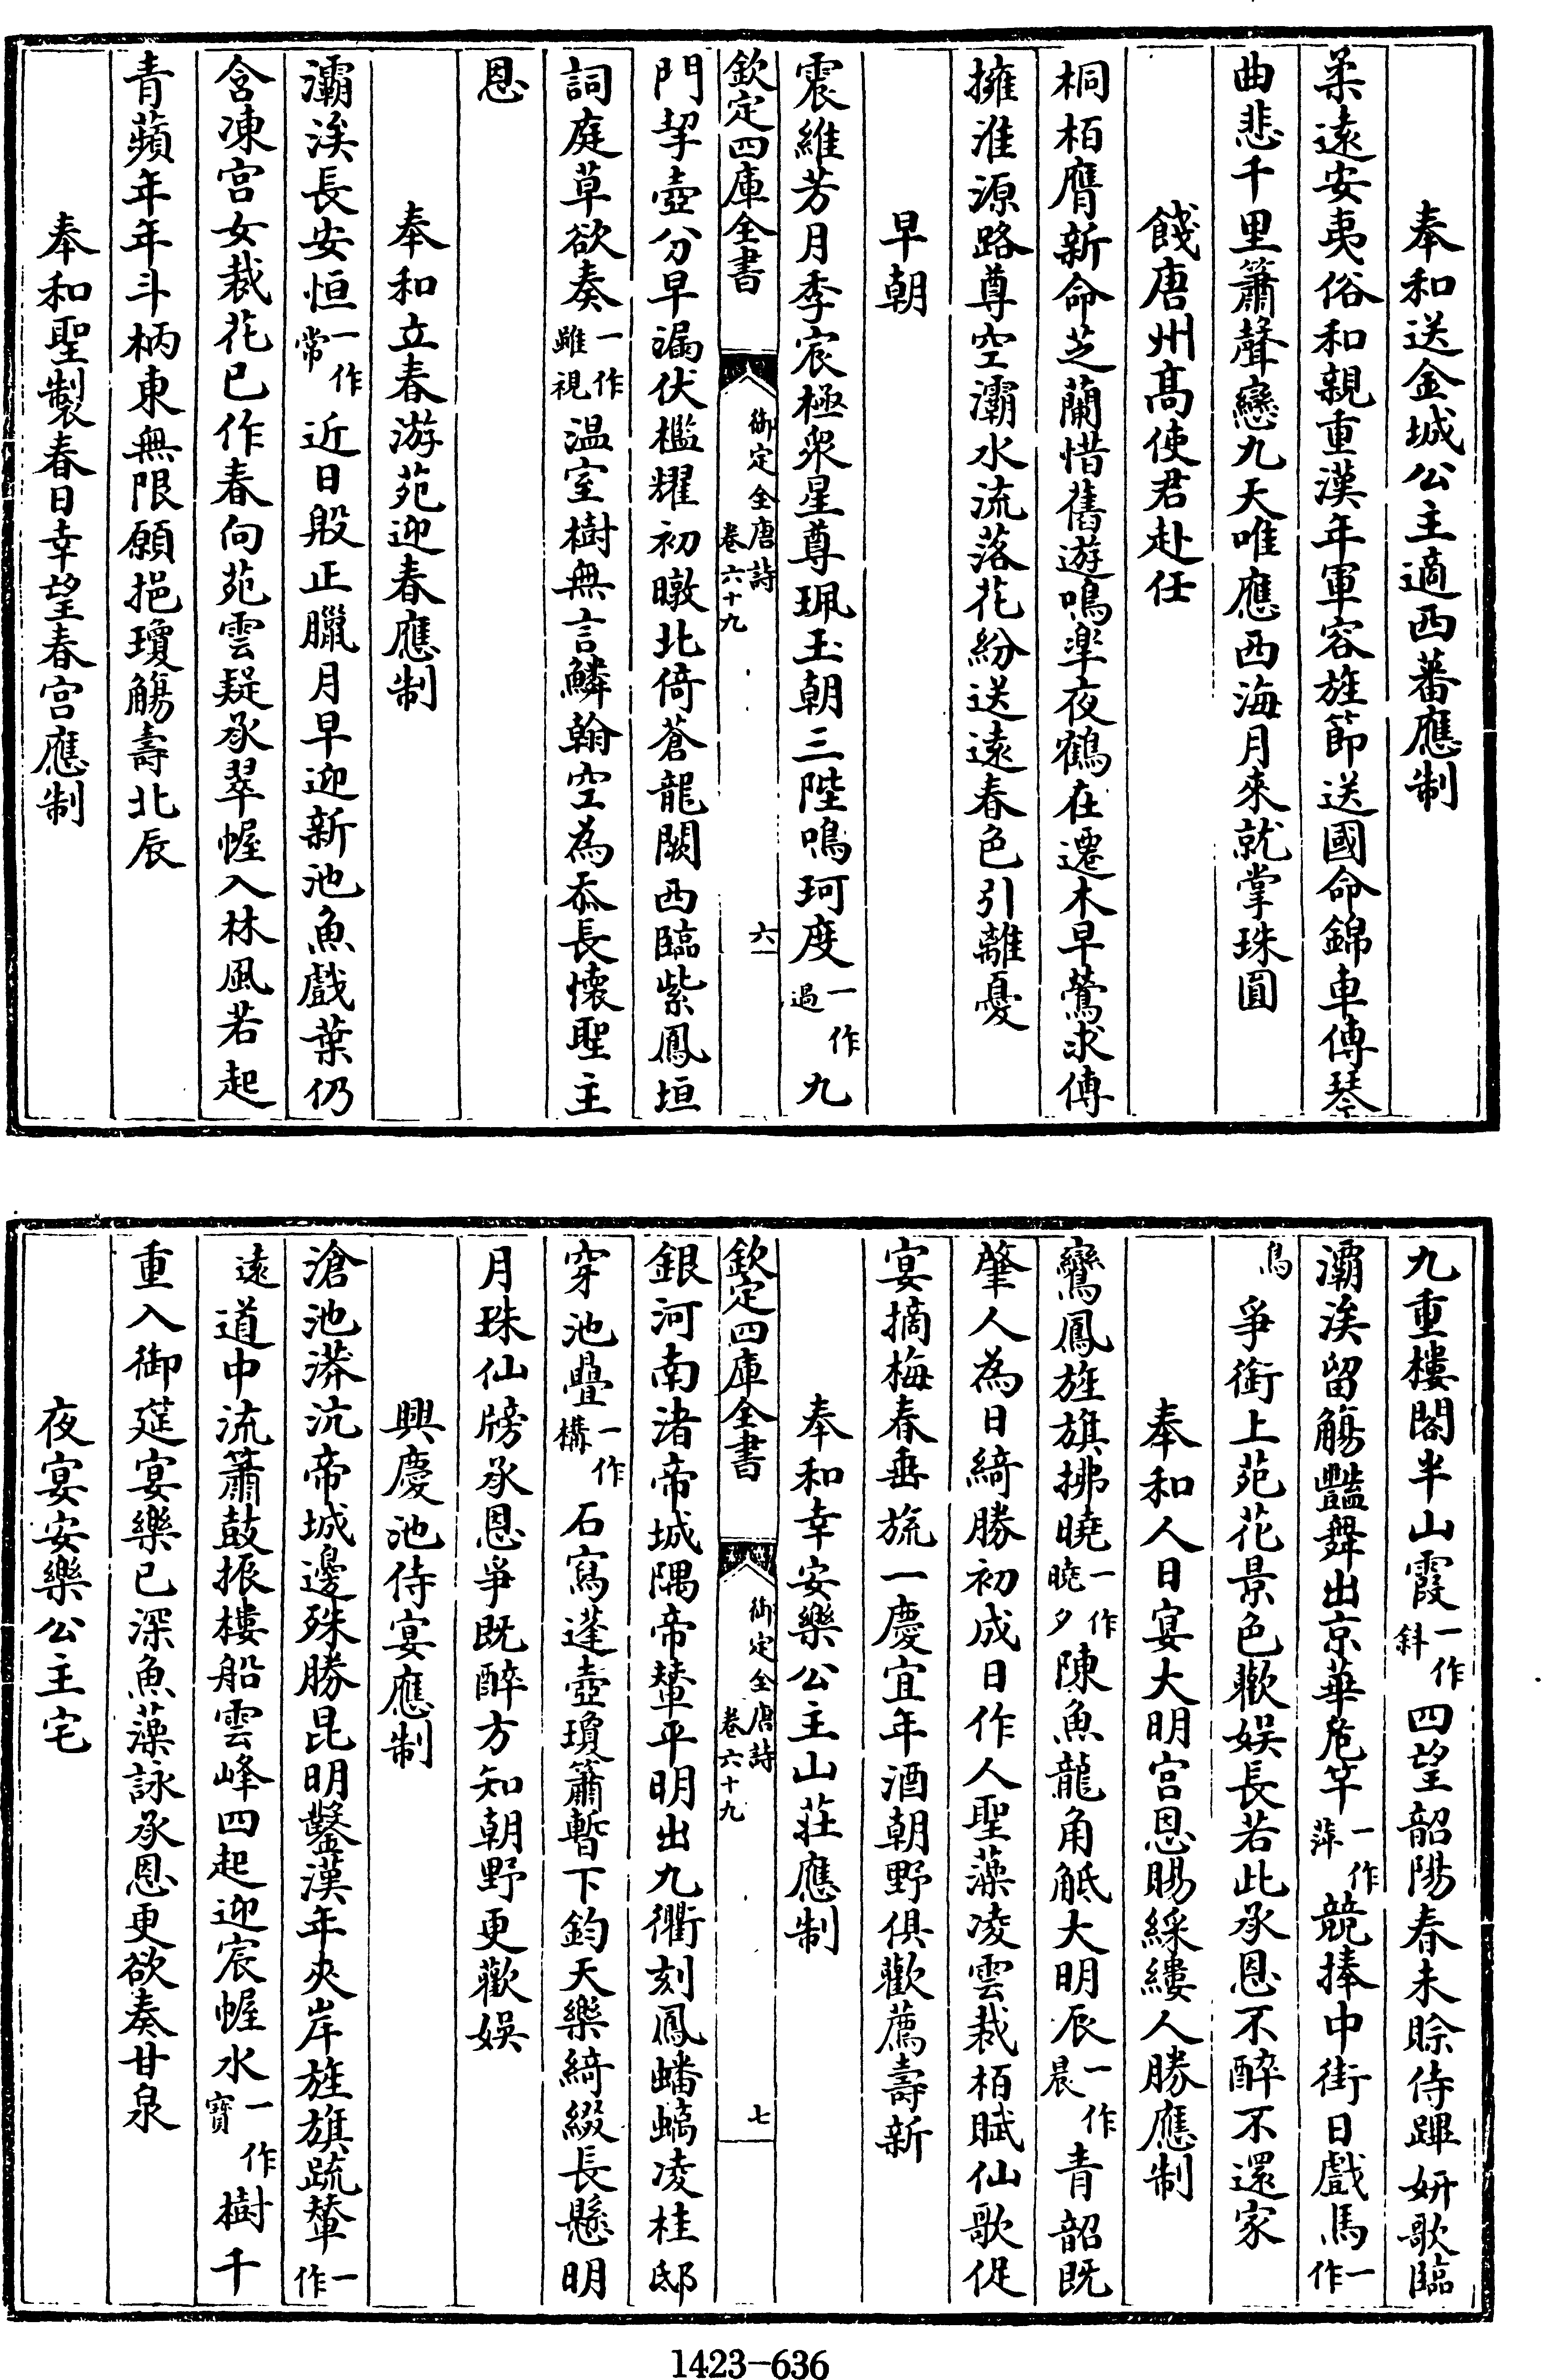 奉和送金城公主適西蕃應制
柔遠安夷俗和親重漢年軍容旌節送國命錦車傳琴
曲悲千里簫聲戀九天唯應西海月來就掌珠圓
餞唐州髙使君赴任
桐柏膺新命芝蘭惜舊遊鳴臯夜鶴在遷木早鶯求傳
擁淮源路尊空灞水流落花紛送遠春色引離憂
早朝
震維芳月季宸極衆星尊珮玉朝三陛鳴珂度一作過九
欽定四庫全書 御定全唐詩卷六十九 六
門挈壺分早漏伏檻耀初暾北倚蒼龍闕西臨紫鳳垣
詞庭草欲奏一作雖視温室樹無言鱗翰空為忝長懐聖主
恩
奉和立春游苑迎春應制
灞涘長安恒一作常近日殷正臘月早迎新池魚戲葉仍
含凍宫女裁花已作春向苑雲疑承翠幄入林風若起
青蘋年年斗柄東無限願挹瓊觴壽北辰
奉和聖製春日幸望春宫應制
九重樓閣半山霞一作斜四望韶陽春未賒侍蹕妍歌臨
灞涘留觴豔舞出京華危竿一作萍競捧中街日戲馬一作
鳥爭銜上苑花景色歡娱長若此承恩不醉不還家
奉和人日宴大明宫恩賜綵縷人勝應制
鸞鳳旌旗拂曉一作曉夕陳魚龍角觝大明辰一作晨青韶既
肇人為日綺勝初成日作人聖藻凌雲裁栢賦仙歌促
宴摘梅春垂旒一慶宜年酒朝野俱歡薦壽新
奉和幸安樂公主山莊應制
欽定四庫全書 御定全唐詩卷六十九 七
銀河南渚帝城隅帝輦平明出九衢刻鳳蟠螭凌桂邸
穿池疊一作構石寫蓬壺瓊簫暫下鈞天樂綺綴長懸明
月珠仙牓承恩爭既醉方知朝野更歡娱
興慶池侍宴應制
滄池漭沆帝城邊殊勝昆明鑿漢年夾岸旌旗疏輦一作
遠道中流簫鼓振樓船雲峰四起迎宸幄水一作寶樹千
重入御筵宴樂已深魚藻詠承恩更欲奏甘泉
夜宴安樂公主宅
1423-636